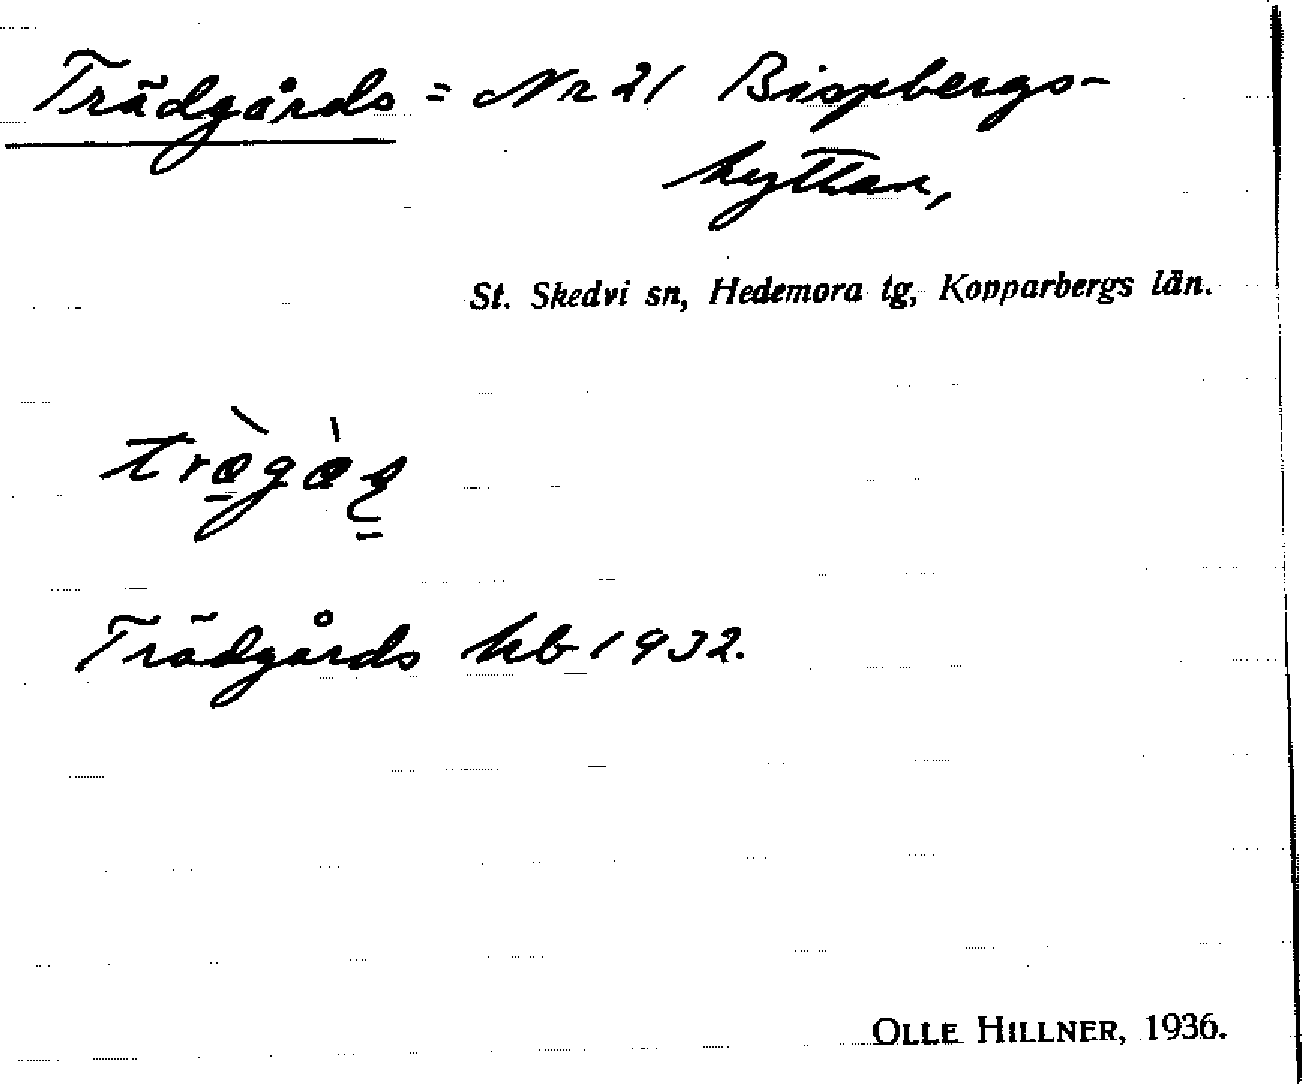 Trädgårds = Nr 21 Bispbergs-
hyttan,
St. Skedvi sn, Hedemora tg, Kopparbergs län.
Trädgårds hb 1932.
OLLE HILLNER, 1936.